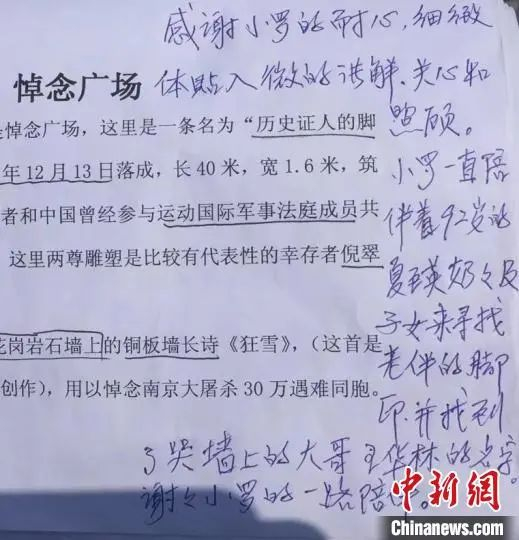 感谢小罗的耐心,细微
体贴入微的讲解、关心和
照顾。
小罗一直陪
伴着92岁的
夏 英奶々及
子女来寻找
老伴的脚
印.并找到
了哭墙上的大哥王华林的名字。
谢々小罗的一路陪
悼念广场
是悼念广场，这里是一条名为“历史证人的脚
年 12 月 13 日落成，长 40 米，宽 1.6 米，筑
者和中国曾经参与运动国际军事法庭成员共
这里两尊雕塑是比较有代表性的幸存者倪翠
花岗岩石墙上的铜板墙长诗《狂雪》，（这首是
创作），用以悼念南京大屠杀 30 万遇难同胞。
中新网
www.chinanews.com